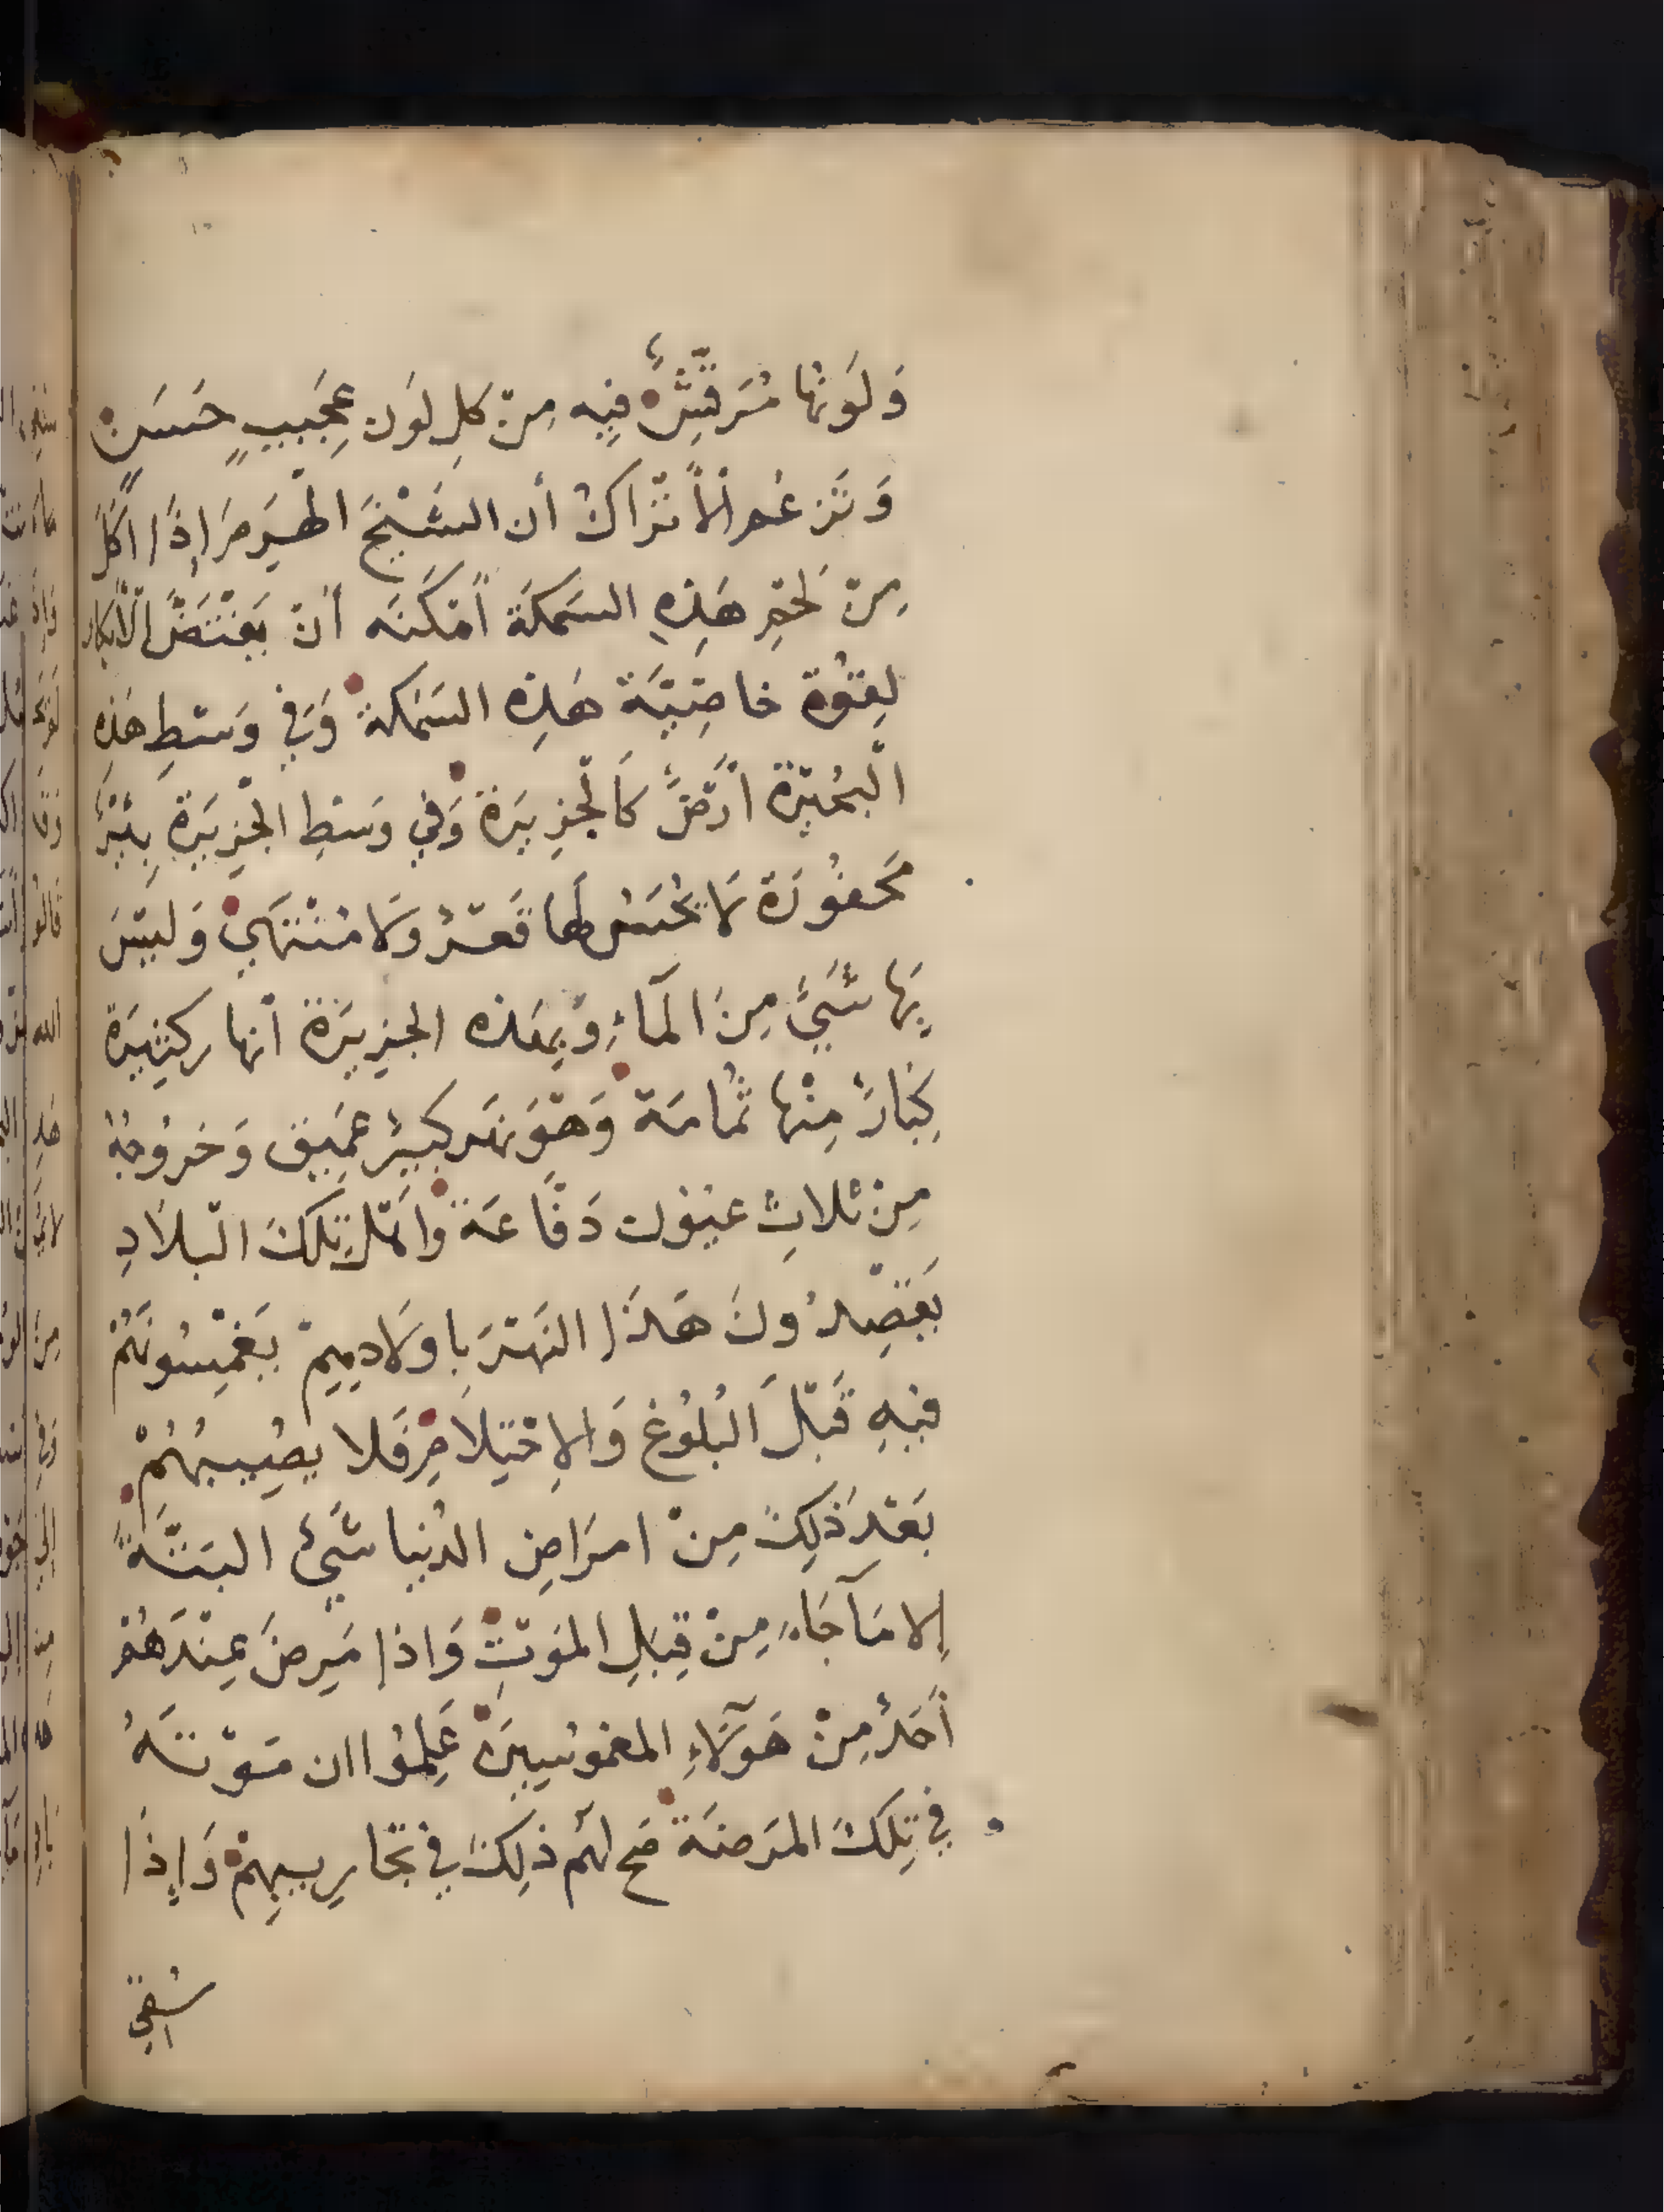 وَلَوَنهَا مُرَقَّشَةٌ فِيهِ مِنْ كلِ لوَن عَجَيبٍ حَسَنٍ
وَتَزعُم الأَتْرَاكُ أن الشَيْخَ الْهَرِمَ إِذَا أكَلَ
مِنْ لَحْمِ هَذِهِ السَمَكَةَ أمْكَنَه أنْ يَفْتَضَّ الْأَبْكار
لِقُوَة خاصِيَّة هَذِه السَمَكة وَفِي وَسْطِ هَذِه
الْبُحَيْرَة أرْضٌ كَالْجَزِيرَة وَفِي وَسْطِ الْجَزِيرَةِ بِئْرٌ
مَحفُورَة لَا يُحَسُ لَهَا قَعْرٌ وَلَا مُنْتَهَي وَلَيْسَ
بِهَا شَيْءٌ مِنَ الْمَآءِ وَبِهَذه الجزِيرَة أنهار كثِيَرة
كِبَارٌ مِنْهَا ثُمامَة وَهْوَ نهَر كبِيرٌ عَمِيق وَخرُوجُهُ
مِنْ ثلاثِ عيُون دَفَّاعَة وَأهْلُ تِلْكَ الْبلَادِ
يَقْصِدُونَ هَذَا النَهْرَ بِاولَادِهِمْ يَغْمِسُونَهُمْ
فيهِ قَبْلَ الْبُلُوغ وَالِاحْتِلَامِ فَلا يصِيبهُمْ
بَعْدَ ذَلِكَ مِنْ امرَاضِ الدُنيا شَيْءٌ البَتَّةَ
إلا مَآ جَاءَ مِنْ قِبَلِ الموَتِ وَاذا مَرِضَ عِنْدَهُمْ
أَحَدٌ مِنْ هَوَلَآءِ المغموُسِينَ عَلِمُوا ان مَوْتَهُ
فِي تِلْكَ المرَضَة صَح لَهُم ذلِكَ فِي تجَاريبهِمْ وَإِذَا
سُقِي